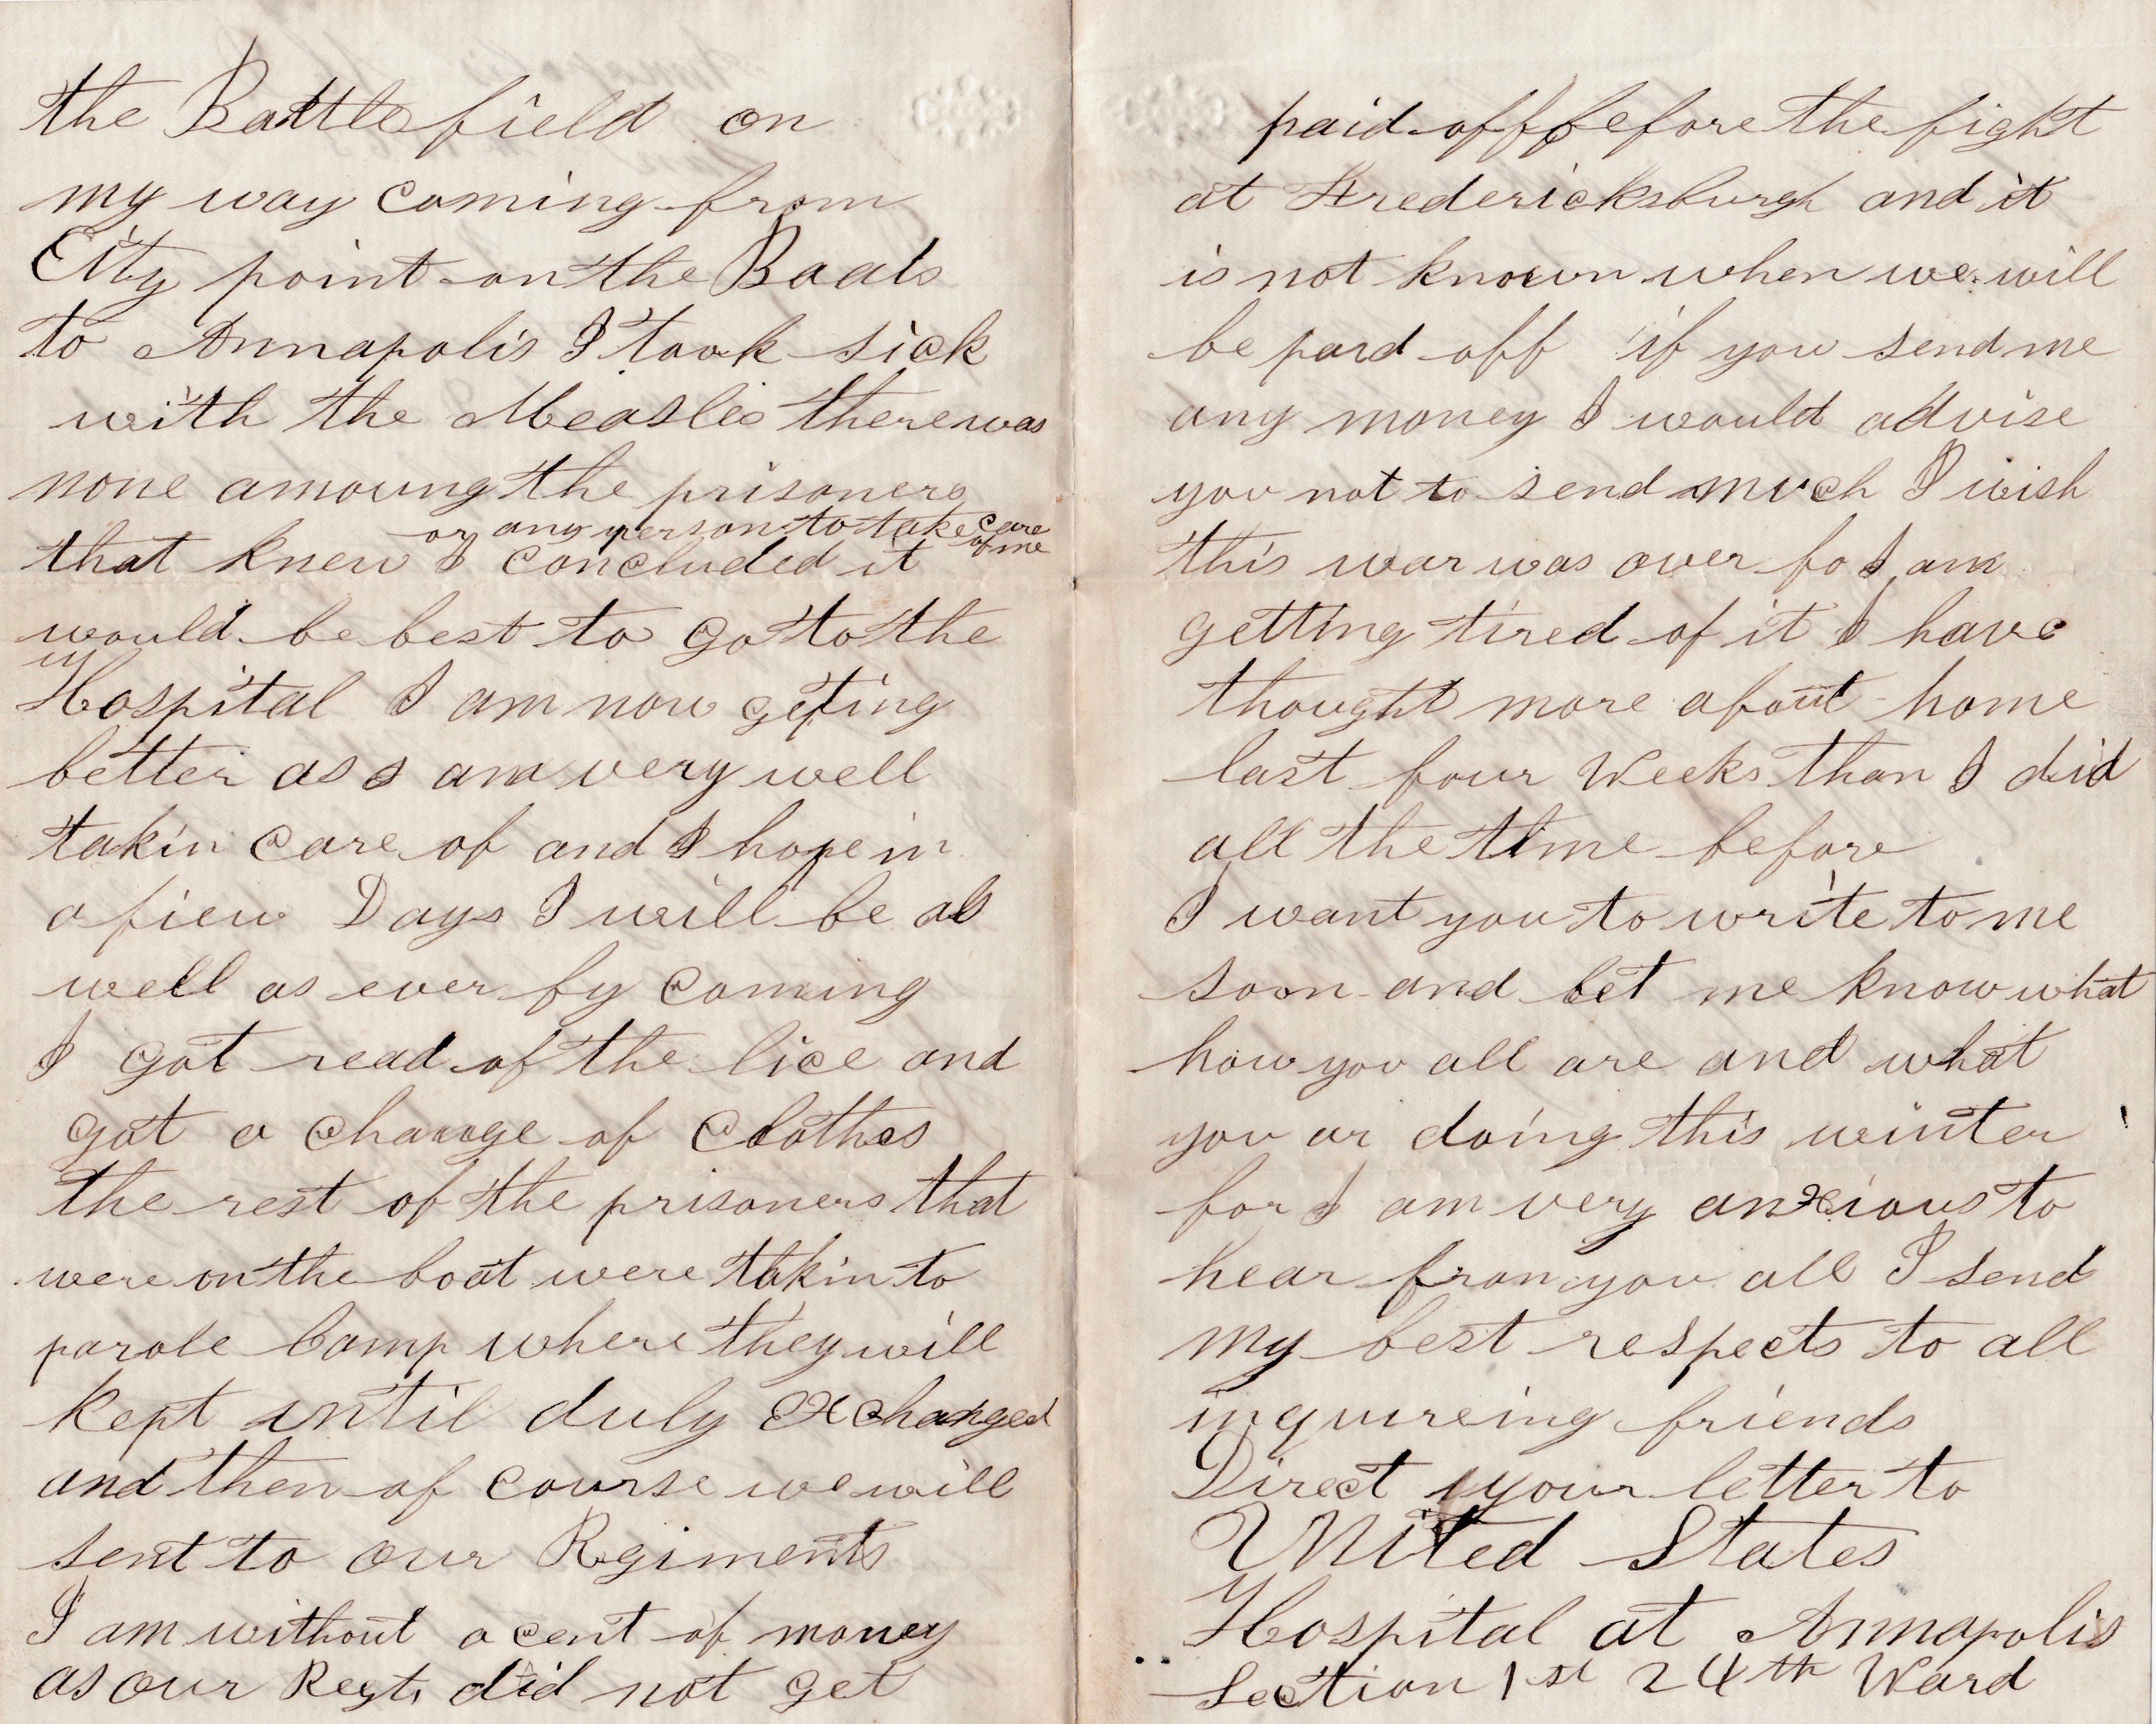 the Battle field on
my way coming from
City point on the Boats
to Annapolis I took sick
with the Measles there was
none amoung the prisoners
or any person to take care of me
that knew I concluded it
would be best to go to the
Hospital I am now geting
better as I am very well
takin care of and I hope in
a fiew Days I will be as
well as ever by coming
I got read of the lice and
got a change of clothes
the rest of the prisoners that
were on the boat were takin to
parole Camp where they will
kept until duly exchanged
and then of course we will
sent to our Regiments
I am without a cent of money
as our Regt. did not get
paid off before the fight
at Fredericksburgh and it
is not known when we will
be paid off if you send me
any money I would advise
you not to send much I wish
this war was over fo I am
getting tired of it I have
thought more about home
last four Weeks than I did
all the time before
I want you to write to me
soon and let me know what
how you all are and what
you ar doing this winter
for I am very anxious to
hear from you all I send
my best respects to all
inquireing friends
Direct your letter to
United States
Hospital at Annapolis
Section 1st 24th Ward